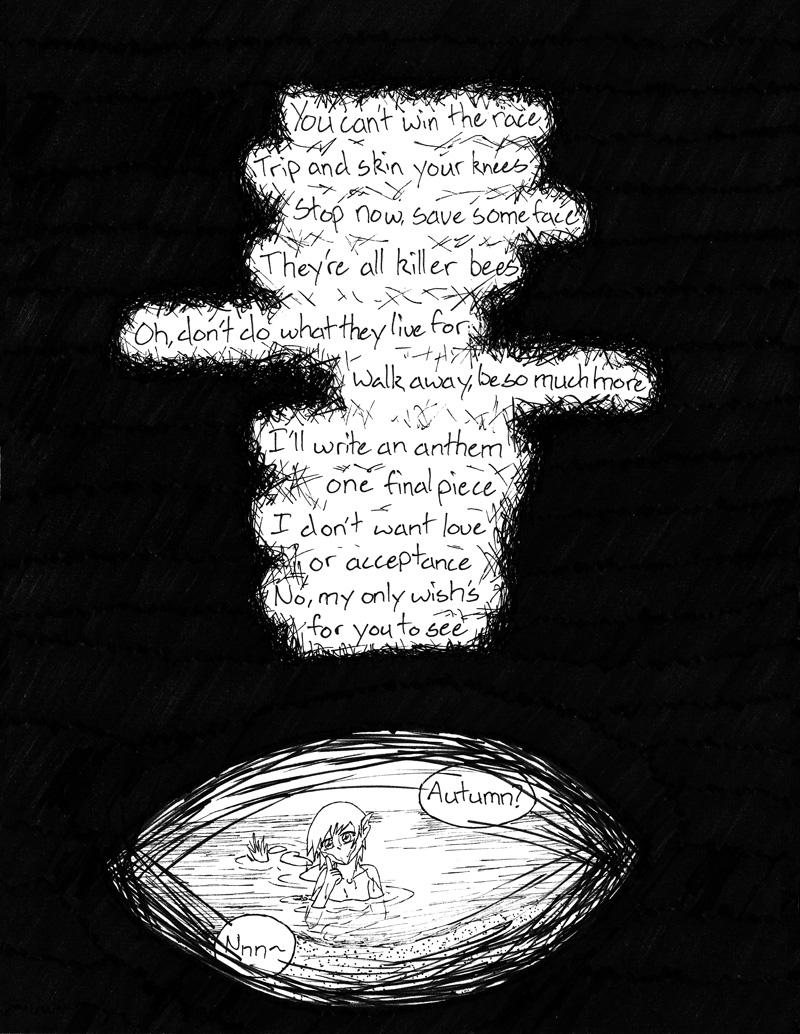 You can't win the race
Trip and skin your knees
Stop now, save some face
They're all killer bees
Oh, don't do what they live for
Walk away, be so much more
I'll write an anthem
one final piece
I don't want love
or acceptance
No, my only wish's
for you to see
Autumn?
Nnn~